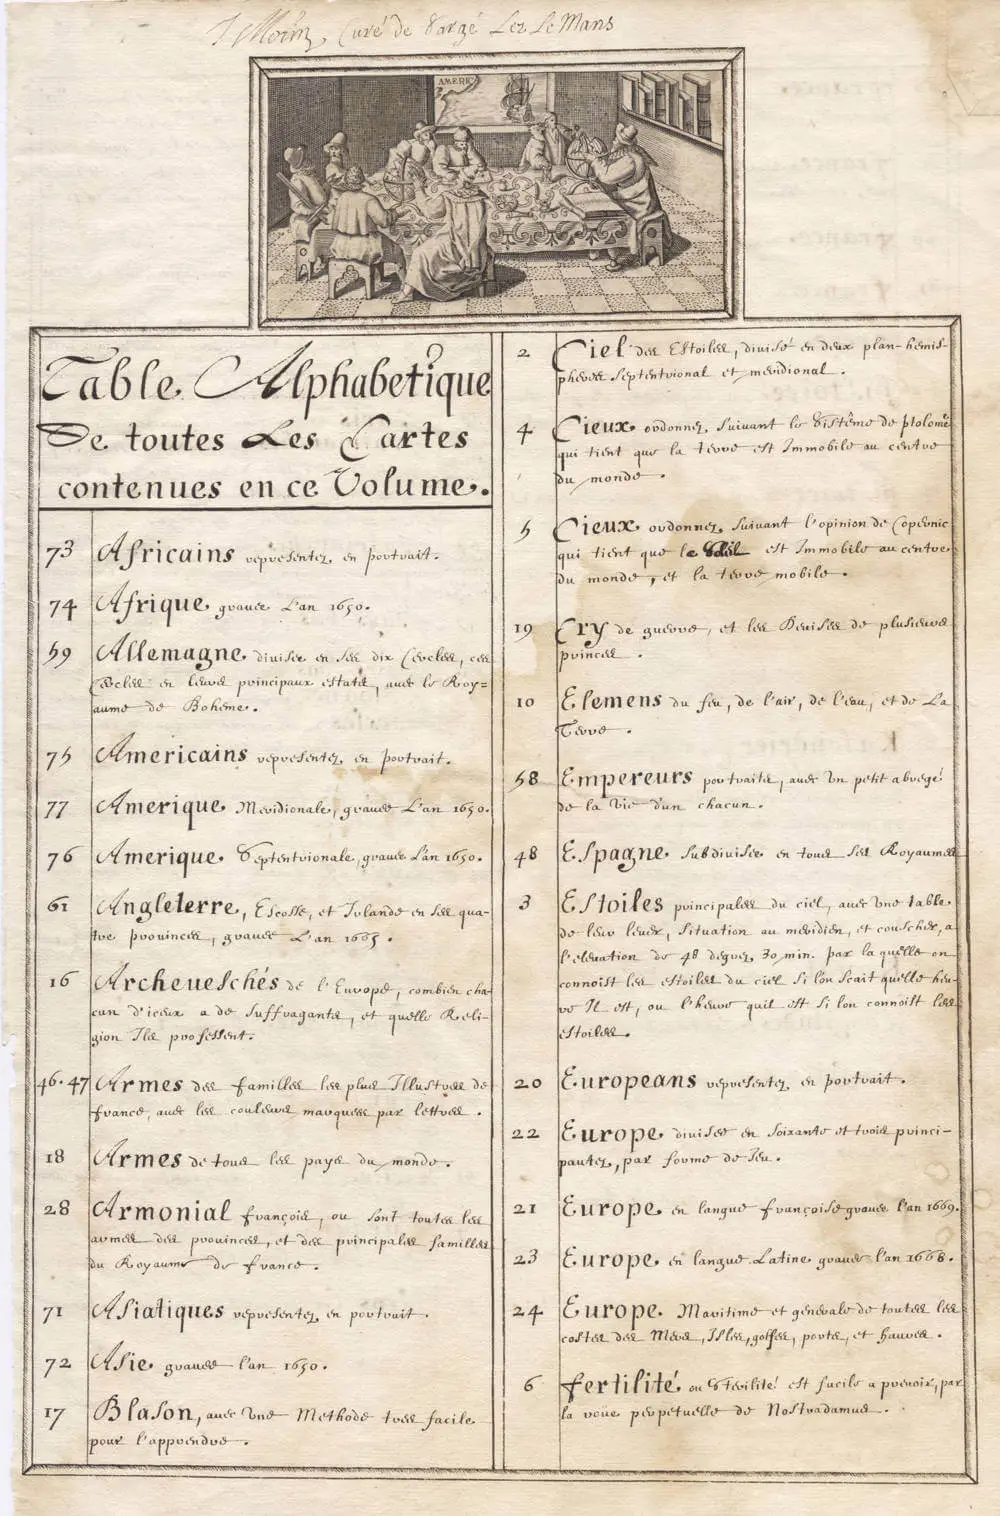 J Morin, Curé de Sargé Lez Le Mans
AMERIC
Table Alphabetique
De toutes Les Cartes
contenues en ce Volume.
73 Africains representez en portrait.
74 Afrique gravée L'an 1650.
59 Allemagne divisée en ses dix Cercles, ces
Cercles en leurs principaux estats, avec le Roy=
aume de Boheme.
75 Americains representez en portrait.
77 Amerique Meridionale, gravée L'an 1650.
76 Amerique Septentrionale, gravée L'an 1650.
61 Angleterre, Escosse, et Irlande en ses qua-
tre provinces, gravée L'an 1665.
16 Archeueschés de l'Europe, combien cha
cun d'iceux a de suffragants, et quelle Reli-
gion Ils professent.
46.47 Armes des familles les plus Illustres de
france, avec les couleurs marquees par lettres.
18 Armes de tous les pays du monde.
28 Armonial françois, ou sont toutes les
armes des provinces, et des principales familles
du Royaume de france.
71 Asiatiques representez en portrait.
72 Asie gravée l'an 1650.
17 Blason, avec Une Methode tres facile
pour l'apprendre.
2 Ciel des Estoiles, divisé en deux plan-hemis-
pheres septentrional et meridional.
4 Cieux ordonnez suivant le Sistême de ptolomé
qui tient que la terre est Immobile au centre
du monde.
5 Cieux ordonnez suivant l'opinion de Copernic
qui tient que le Soleil est Immobile au centre
du monde, et la terre mobile.
19 Cry de guerre, et les Devises de plusieurs
princes.
10 Elemens du feu, de l'air, de l'eau, et de La
Terre.
58 Empereurs portraits, avec Un petit abregé
de la Vie d'un chacun.
48 Espagne subdivisée en tous ses Royaumes
3 Estoiles principales du ciel, avec Une table
de leur lever, situation au meridien, et couscher, a
l'elevation de 48 degrez 30 min. par laquelle on
connoist les estoiles du ciel si l'on scait quelle heu-
re Il est, ou l'heure quil est si lon connoist les
estoiles.
20 Europeans representez en portrait.
22 Europe divisée en soixante et trois princi-
pautez, par forme de Jeu.
21 Europe en langue françoise gravée l'an 1669.
23 Europe en langue Latine gravée l'an 1668.
24 Europe Maritime et generale de toutes les
costes des Mers, Isles, golfes, ports, et havres.
6 fertilité ou Sterilité est facile a prevoir, par
la roüe perpetuelle de Nostradamus.